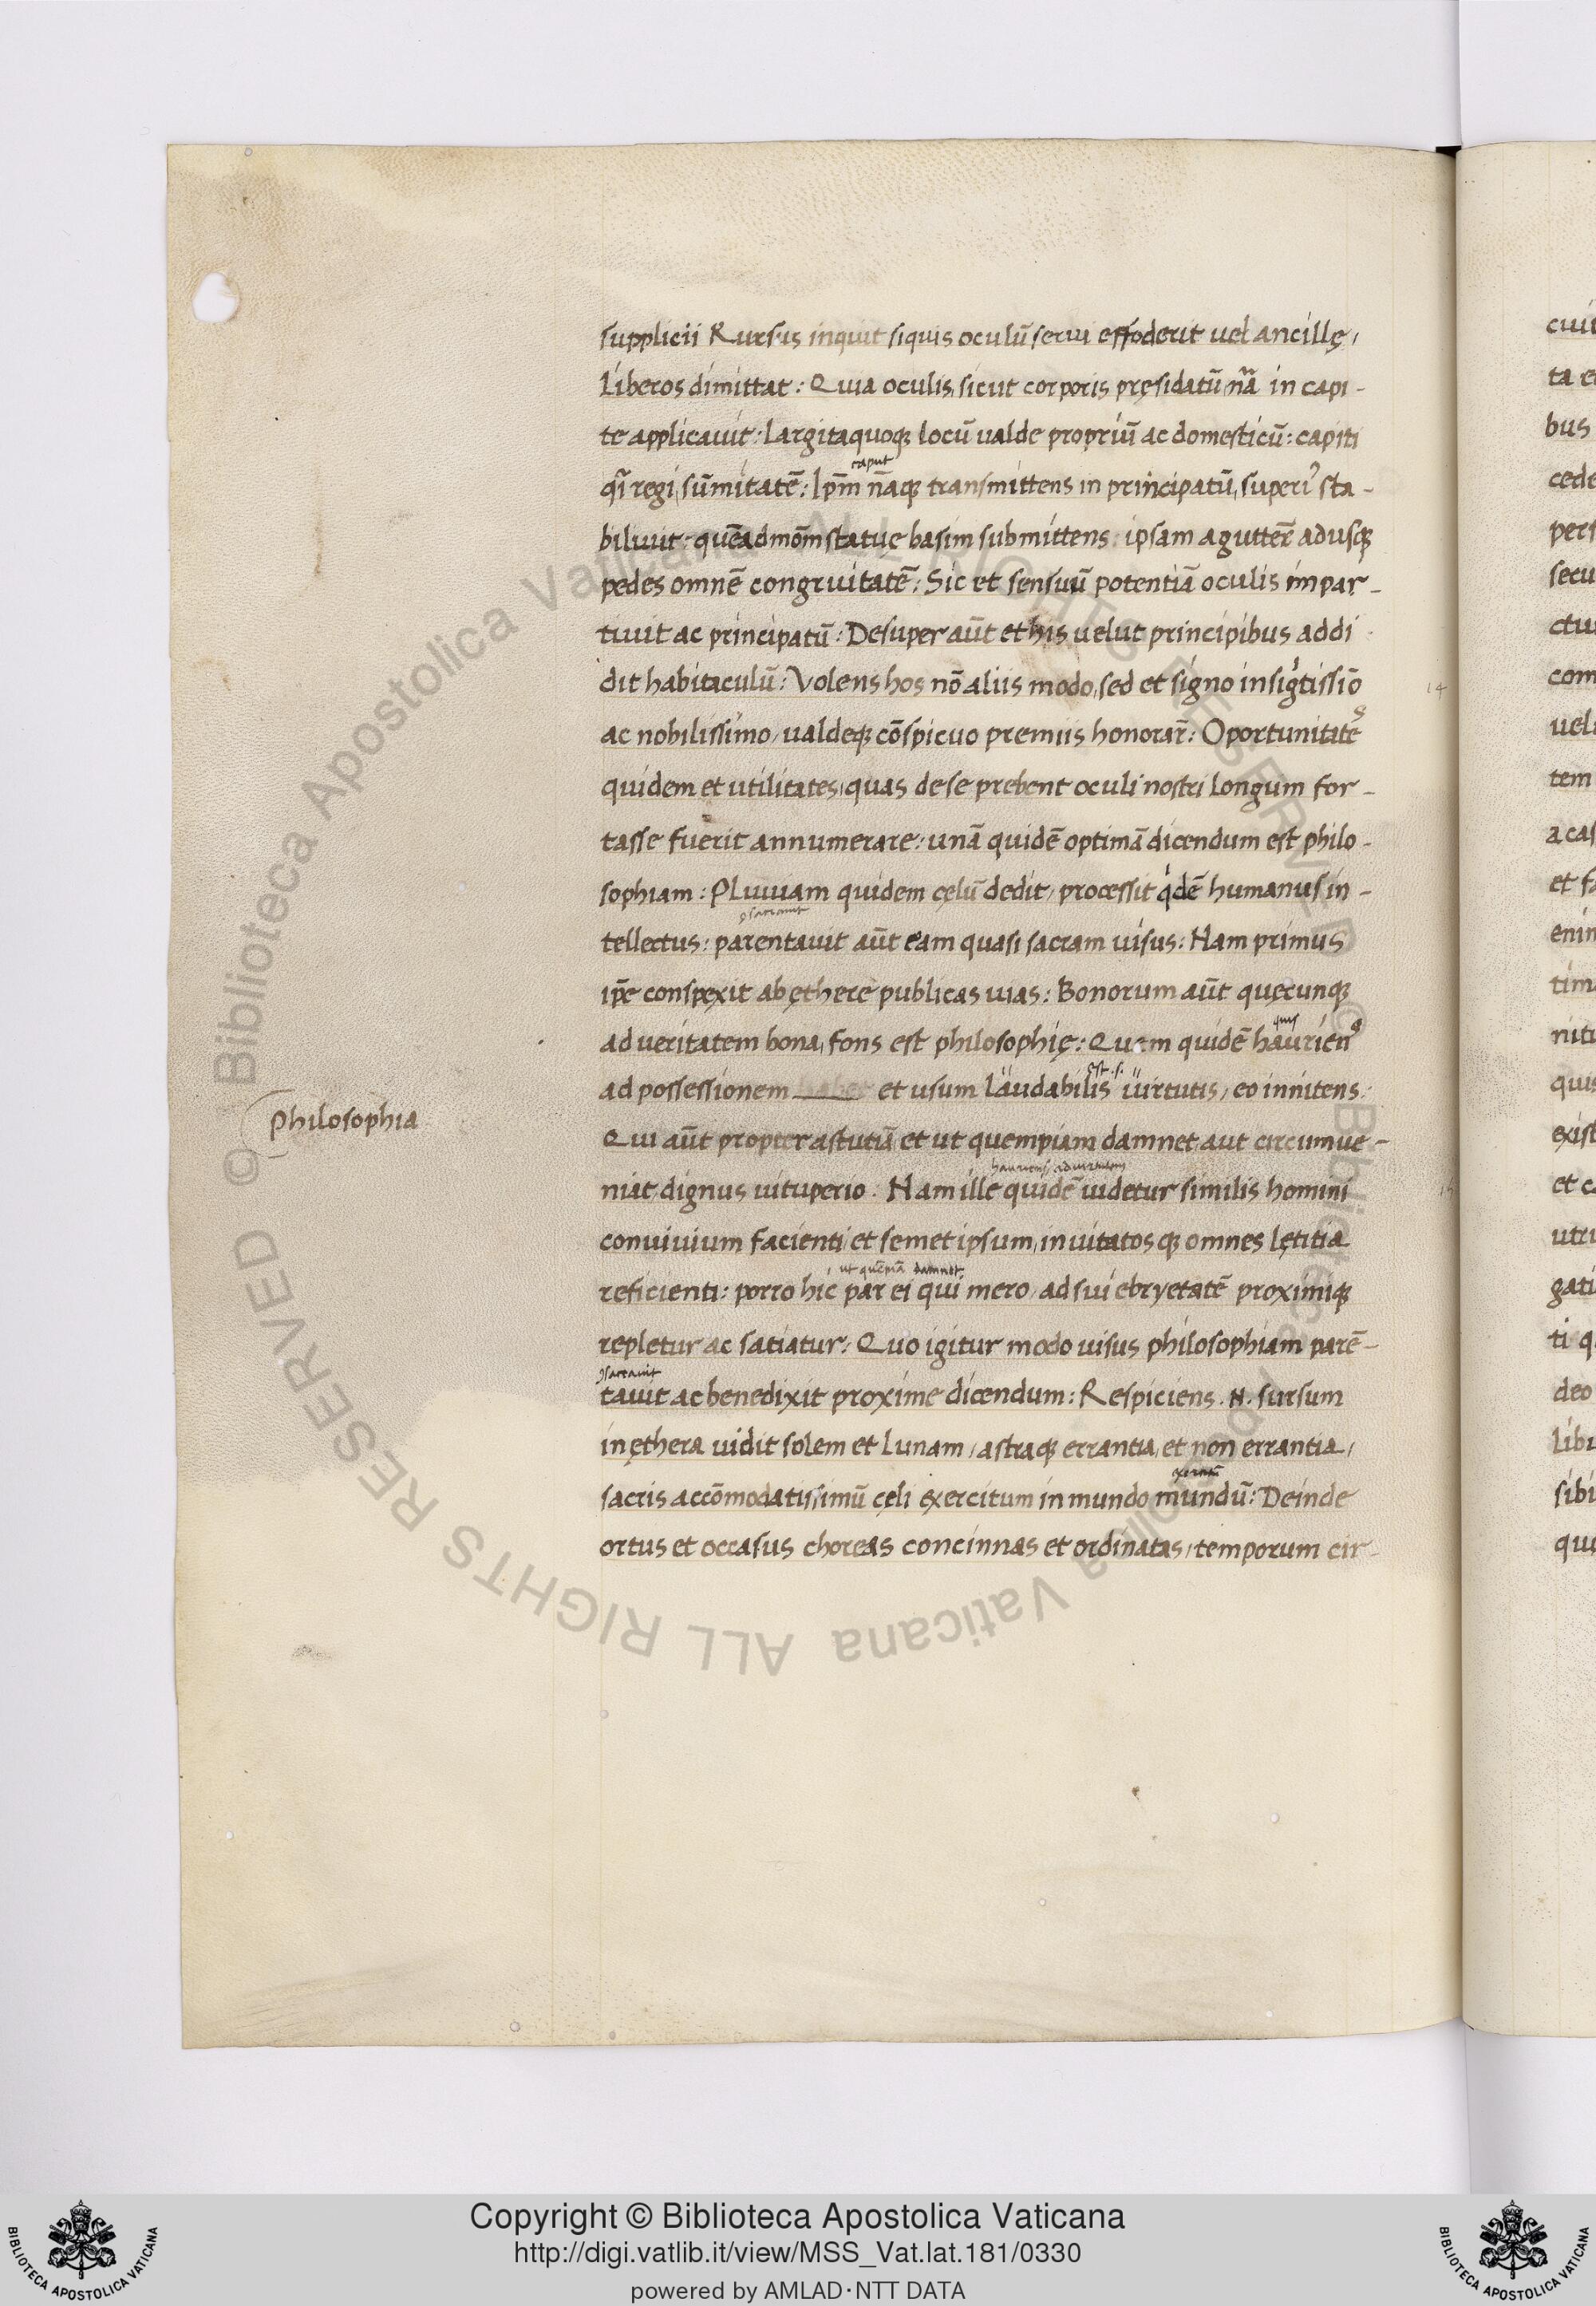 supplicii Rursus inquit siquis oculū serui effoderit uel ancillę,
liberos dimittat: Quia oculis, sicut corporis pręsidatū nrā in capi-
te applicauit: Largita quoq; locū ualde propriū ac domesticū: capiti
qi regi, sūmitatē: Ipm nāq; transmittens in principatū, superi' sta-
caput
biliuit: quēadmōm statuę basim submittens: ipsam a gutterē adusq;
pedes omnē congruitatē: Sic et sensuū potentiā oculis impar-
tiuit ac principatū: Desuper aūt et his uelut principibus addi
dit habitaculū: Volens hos nō aliis modo, sed et signo insigtissiō
14
ac nobilissimo, ualdeq; cōspicuo premiis honorar̄: Oportunitatēs
quidem et utilitates, quas de se prebent oculi nostri longum for-
tasse fuerit annumerare: unā quidē optimā dicendum est philo-
sophiam: Pluuiam quidem cęlū dedit, processit qdē humanus in-
tellectus: parentauit aūt eam quasi sacram uisus: Nam primus
ipē conspexit ab ęthere publicas uias: Bonorum aūt quęcunq;
ad ueritatem bona, fons est philosophię: Quem quidē hauriens
quis
ad possessionem et usum laudabilis uirtutis, eo innitens:
est. s.
Philosophia
Qui aūt propter astutiā et ut quempiam damnet aut circumue-
niat, dignus uituperio. Nam ille quidē uidetur similis homini
hauriens ad uirtutem
conuiuium facienti, et semet ipsum, inuitatosq; omnes lętitia
reficienti: porro hic par ei qui mero, ad sui ebryetatē proximiq;
ut quēpiā damnet
repletur ac satiatur: Quo igitur modo uisus philosophiam parē-
tauit ac benedixit proxime dicendum: Respiciens .N. sursum
in ęthera uidit solem et lunam, astraq; errantia, et non errantia,
sacris accōmodatissimū cęli exercitum in mundo mundū: Deinde
ortus et occasus choreas concinnas et ordinatas, temporum cir-
Copyright © Biblioteca Apostolica Vaticana
http://digi.vatlib.it/view/MSS_Vat.lat.181/0330
powered by AMLAD·NTT DATA
BIBLIOTECA APOSTOLICA VATICANA
BIBLIOTECA APOSTOLICA VATICANA
© Biblioteca Apostolica Vaticana ALL RIGHTS RESERVED © Biblioteca Apostolica Vaticana ALL RIGHTS RESERVED